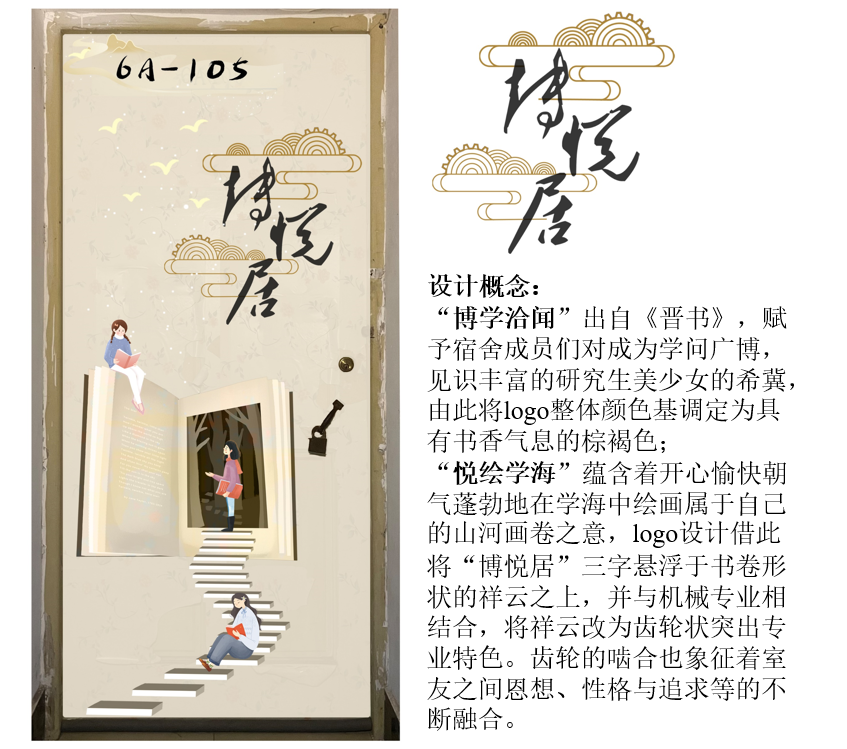 6A-105
博
悦
居
博
悦
居
设计概念：
“博学洽闻”出自《晋书》，赋
予宿舍成员们对成为学问广博，
见识丰富的研究生美少女的希冀，
由此将logo整体颜色基调定为具
有书香气息的棕褐色；
“悦绘学海”蕴含着开心愉快朝
气蓬勃地在学海中绘画属于自己
的山河画卷之意，logo设计借此
将“博悦居”三字悬浮于书卷形
状的祥云之上，并与机械专业相
结合，将祥云改为齿轮状突出专
业特色。齿轮的啮合也象征着室
友之间恩想、性格与追求等的不
断融合。